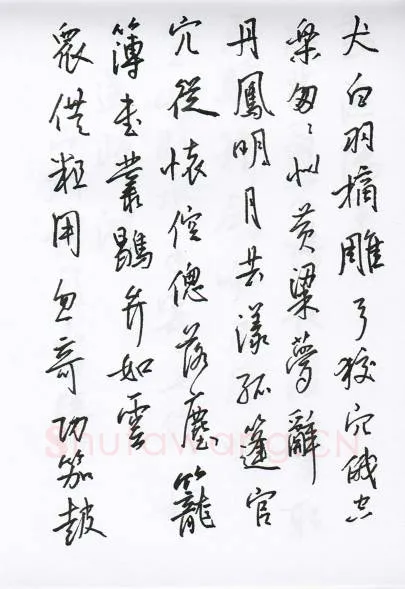 犬白羽摘雕弓狡穴俄空
樂匆〻似黄粱夢辭
丹鳳明月共漾孤篷官
冗從懷倥傯落塵籠
簿書叢鶡弁如雲
眾供粗用忽奇功笳鼓
Shufawang.CN